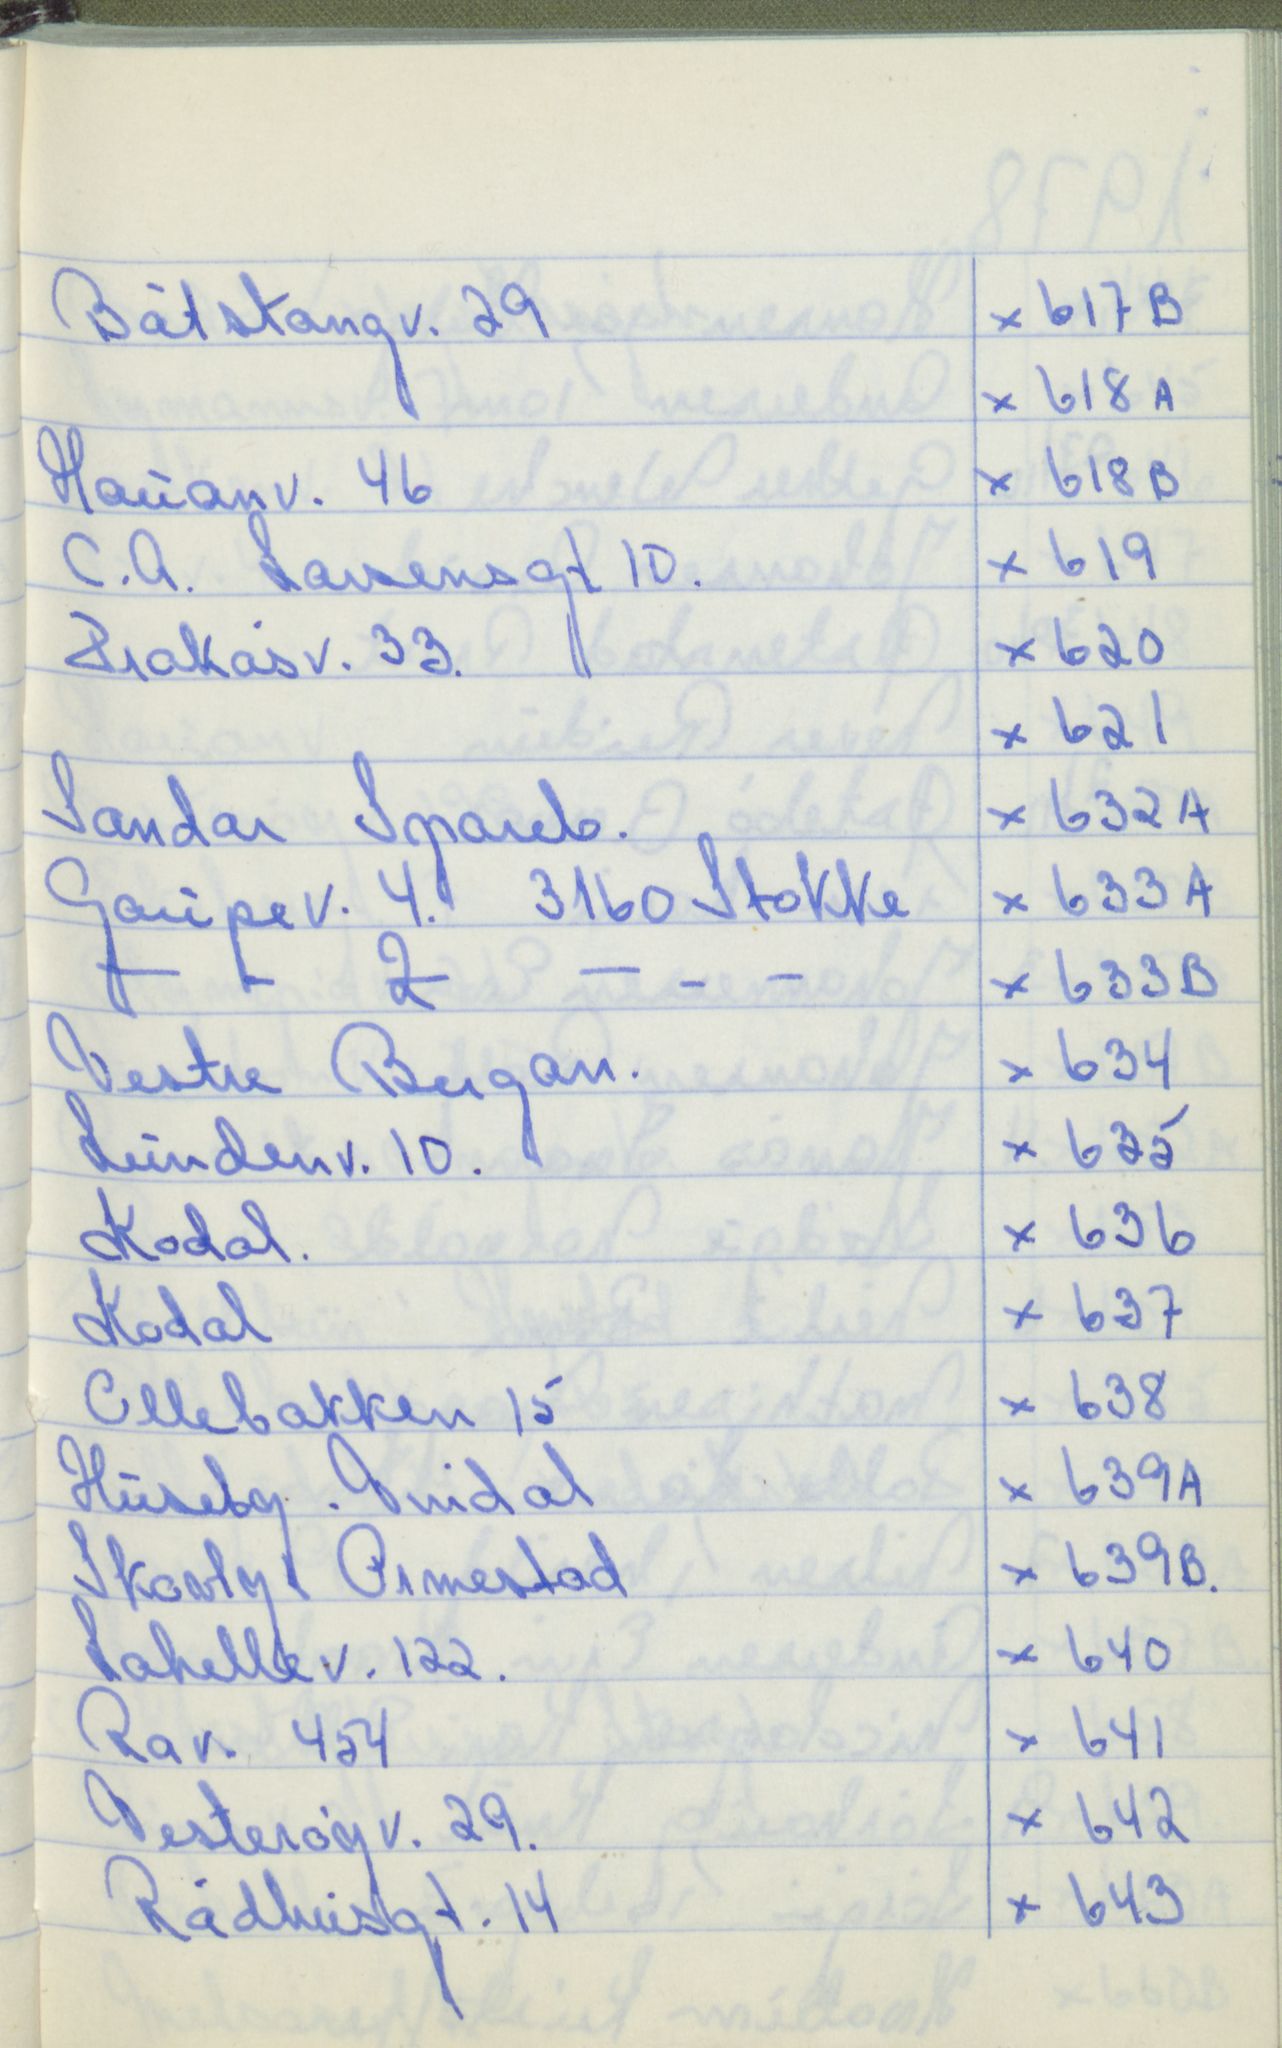 Båtstangv. 29 x 617B
x 618A
Hauanv. 46 x 618B
C.A. Larsensgt 10. x 619
Brakåsv. 33. x 620
x 621
Sandar Spareb. x 632A
Gaupev. 4. 3160 Stokke x 633A
— - 2 — - - x 633B
Vestre Bugan. x 634
Lundenv. 10. x 635
Kodal. x 636
Kodal x 637
Ollebakken 15 x 638
Huseby. Vindal x 639A
Skovly Ormestad x 639B.
Lahellev. 122. x 640
Rav. 454 x 641
Vesterøyv. 29. x 642
Rådhusgt. 14 x 643